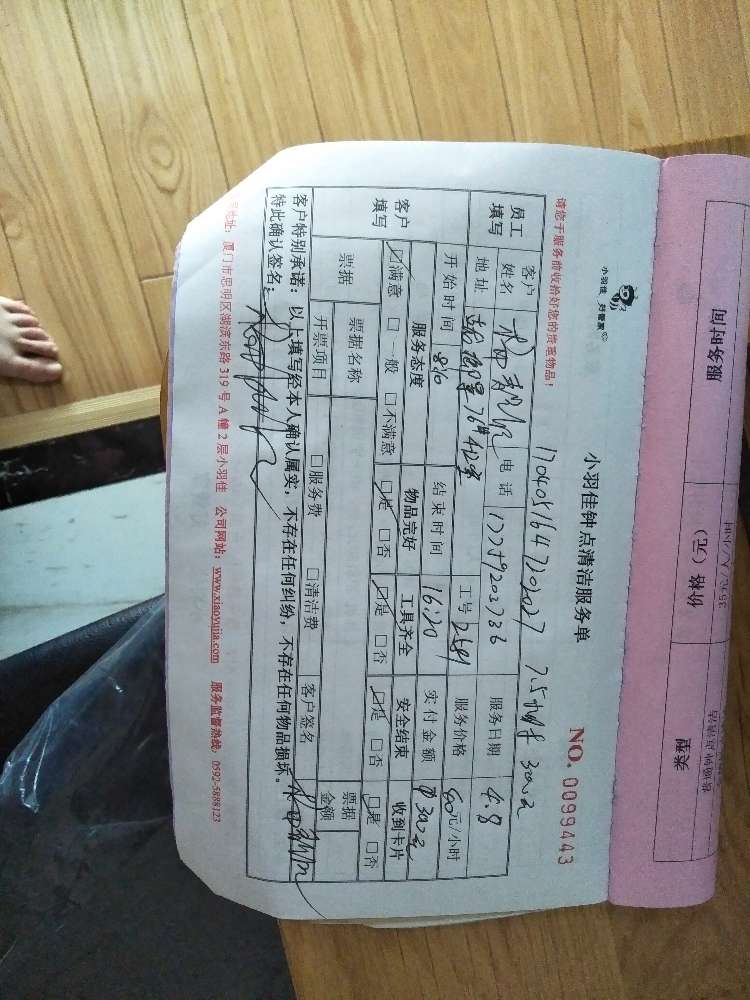 服务时间 价格（元） 类型
35元/人/小时
小羽佳 好管家
小羽佳钟点清洁服务单
NO. 0099443
请您于服务前收拾好您的贵重物品！
170408164720227 7.5小时 300元
员工填写 客户姓名 电话 17759203736 服务日期 4.8
地址 工号 2581 服务价格 40元/小时
客户填写 开始时间 8:10 结束时间 16:20 实付金额 300元
服务态度 物品完好 工具齐全 安全结束 收到卡片
☑满意 □一般 □不满意 ☑是 □否 ☑是 □否 ☑是 □否 ☑是 □否
票据 票据名称 □服务费 □清洁费 客户签名 票据金额
开票项目
客户特别承诺：以上填写经本人确认属实，不存在任何纠纷，不存在任何物品损坏。
特此确认签名：
地址：厦门市思明区湖滨东路319号A幢2层小羽佳 公司网站：www.xiaoyujia.com 服务监督热线：0592-5888123